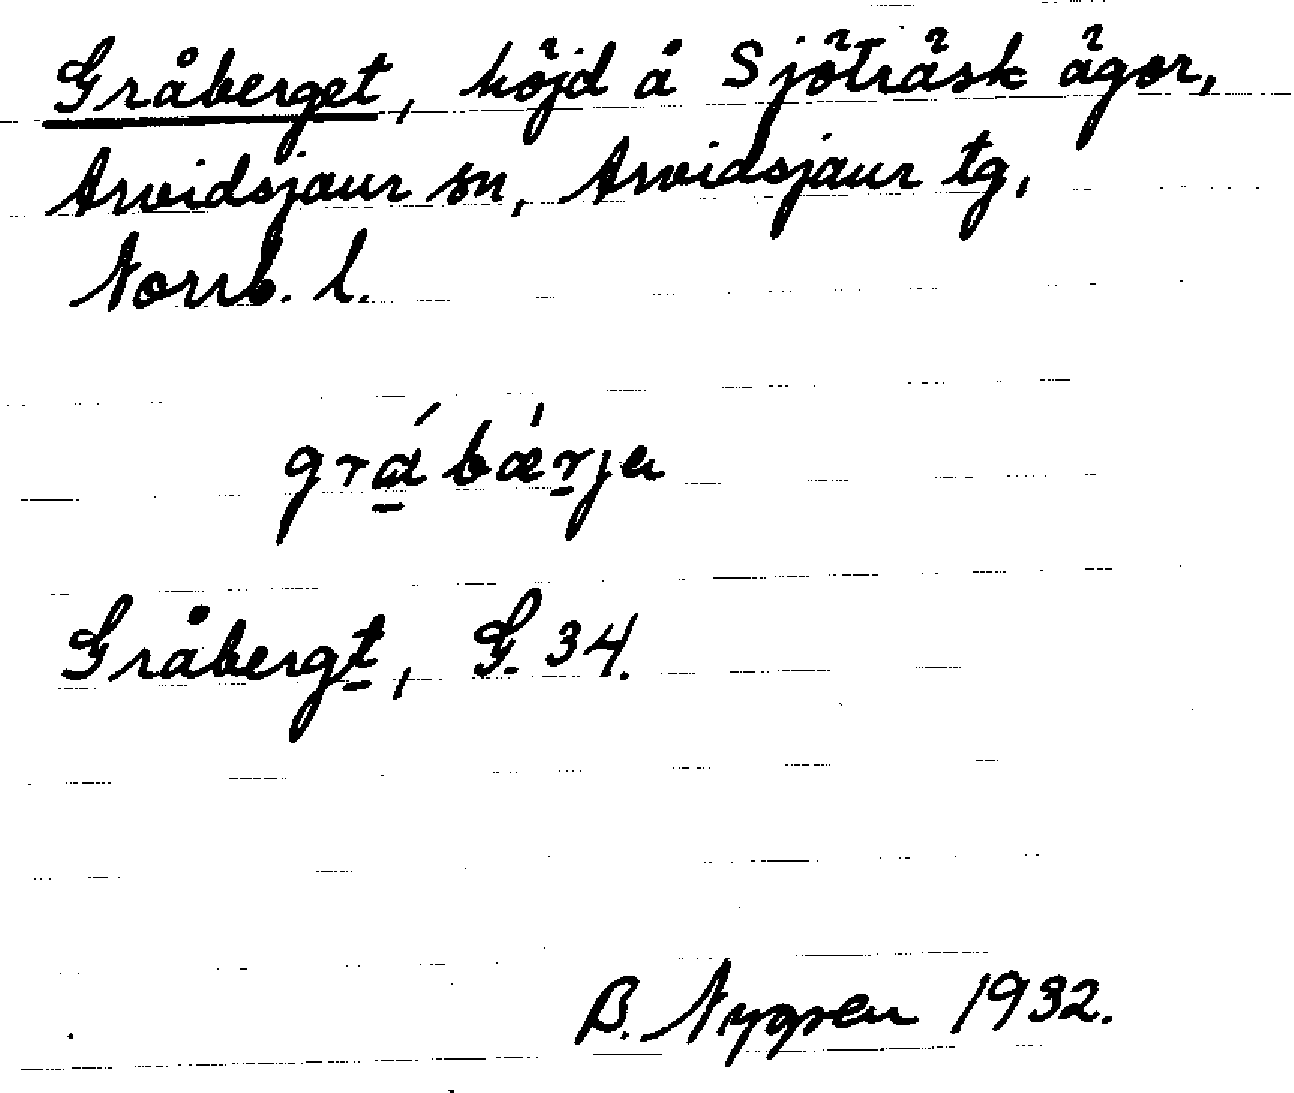 Gråberget, höjd å Sjöträsk ägor,
Arvidsjaur sn, Arvidsjaur tg,
Norrb. l.
grá̱bǽṟja
Gråbergṯ, G. 34.
B. Nygren 1932.